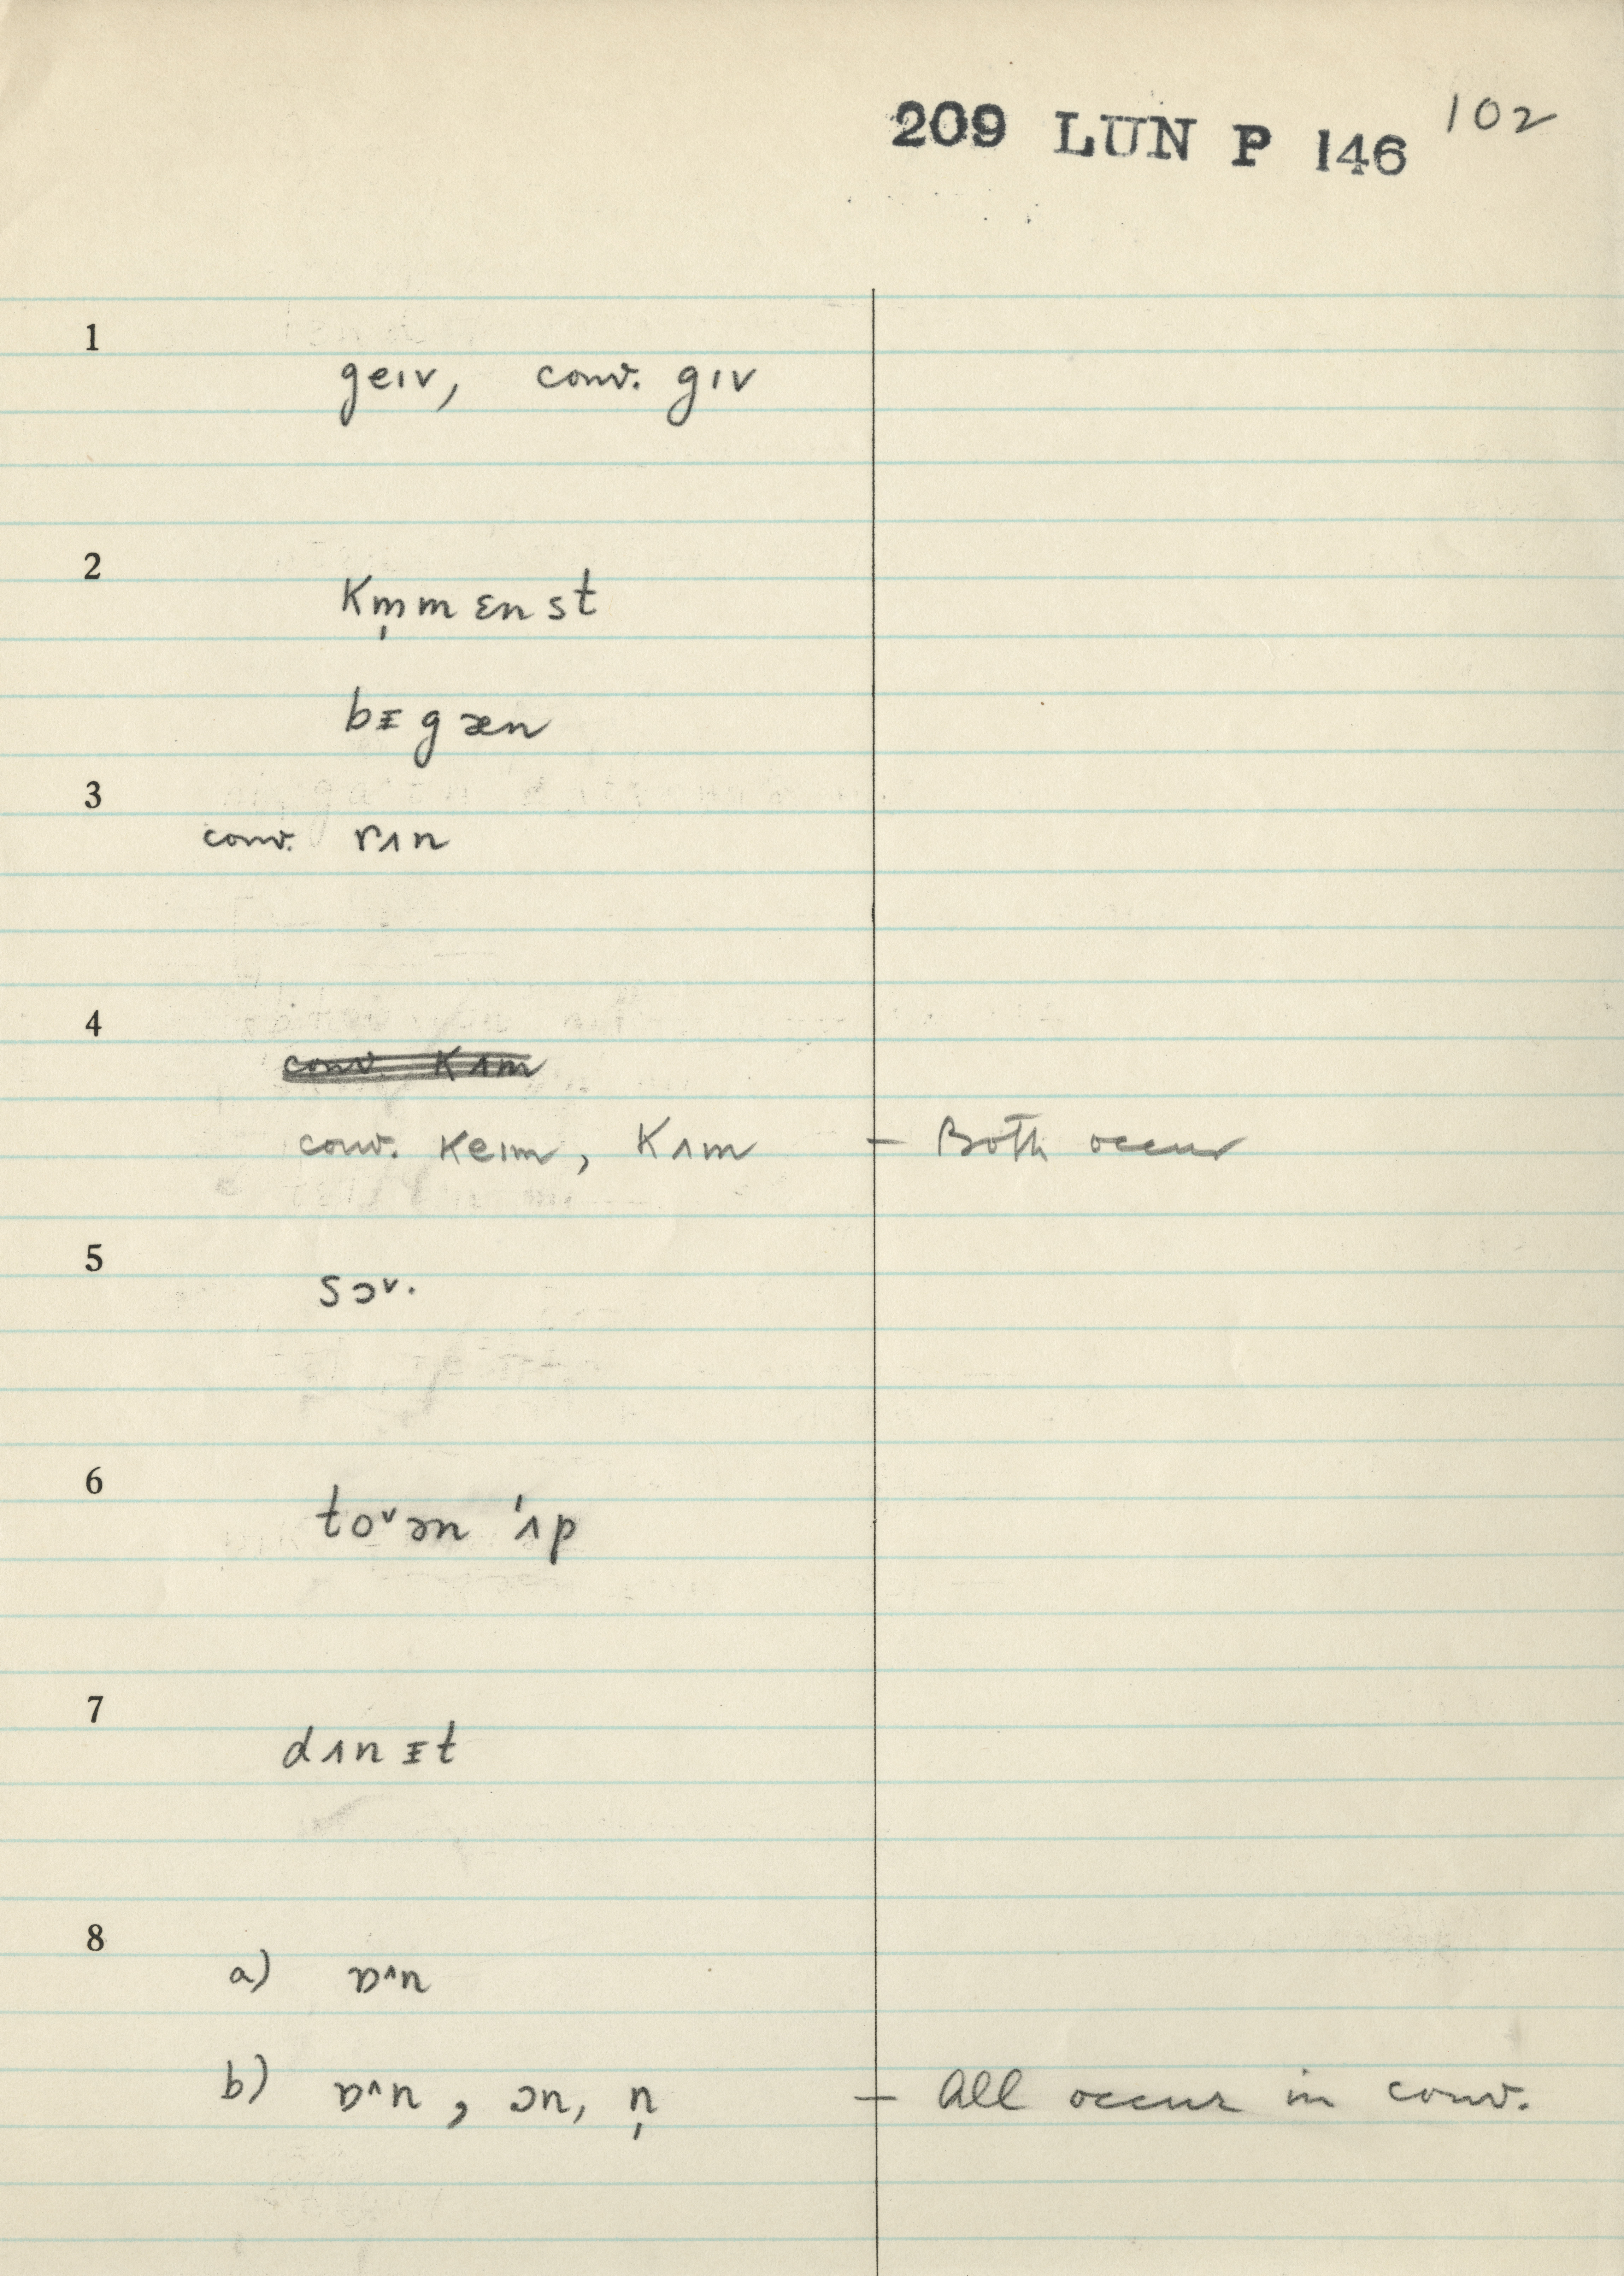 209 LUN P 146 102
1
geɪv, conv. gɪv
2
km̩mɛnst
bᵻgæn
3
conv. rʌn
4
conv. kʌm
conv. keɪm, kʌm — Both occur
5
sɔᵛ·
6
toᵛən 'ʌp
7
dʌnᵻt
8
a) ɒ^n
b) ɒ^n, ɔn, n̩ — All occur in conv.